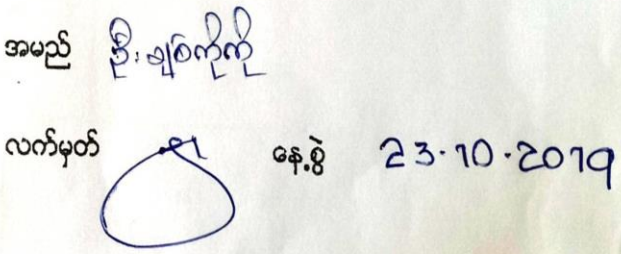 အမည် ဦးချစ်ကိုကို
လက်မှတ် နေ့စွဲ 23.10.2019